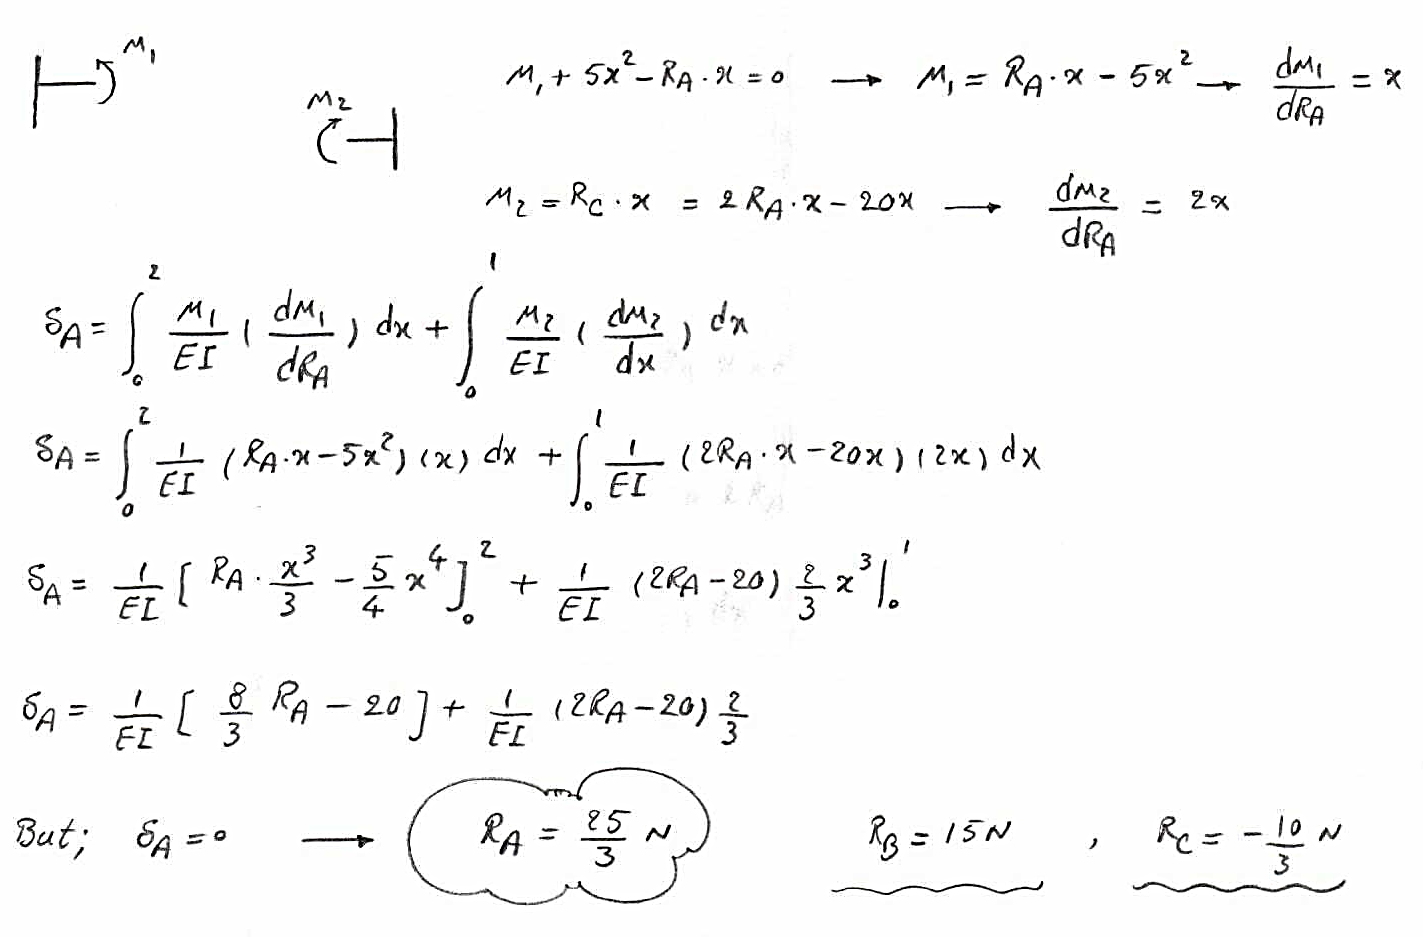 M₁
M₁ + 5x² - R_A · x = 0 → M₁ = R_A · x - 5x² → dM₁/dR_A = x
M₂
M₂ = R_C · x = 2R_A · x - 20x → dM₂/dR_A = 2x
δ_A = ∫₀² M₁/EI (dM₁/dR_A) dx + ∫₀¹ M₂/EI (dM₂/dx) dx
δ_A = ∫₀² 1/EI (R_A · x - 5x²) (x) dx + ∫₀¹ 1/EI (2R_A · x - 20x) (2x) dx
δ_A = 1/EI [R_A · x³/3 - 5/4 x⁴]₀² + 1/EI (2R_A - 20) 2/3 x³|₀¹
δ_A = 1/EI [8/3 R_A - 20] + 1/EI (2R_A - 20) 2/3
But; δ_A = 0 → R_A = 25/3 N R_B = 15 N , R_C = -10/3 N